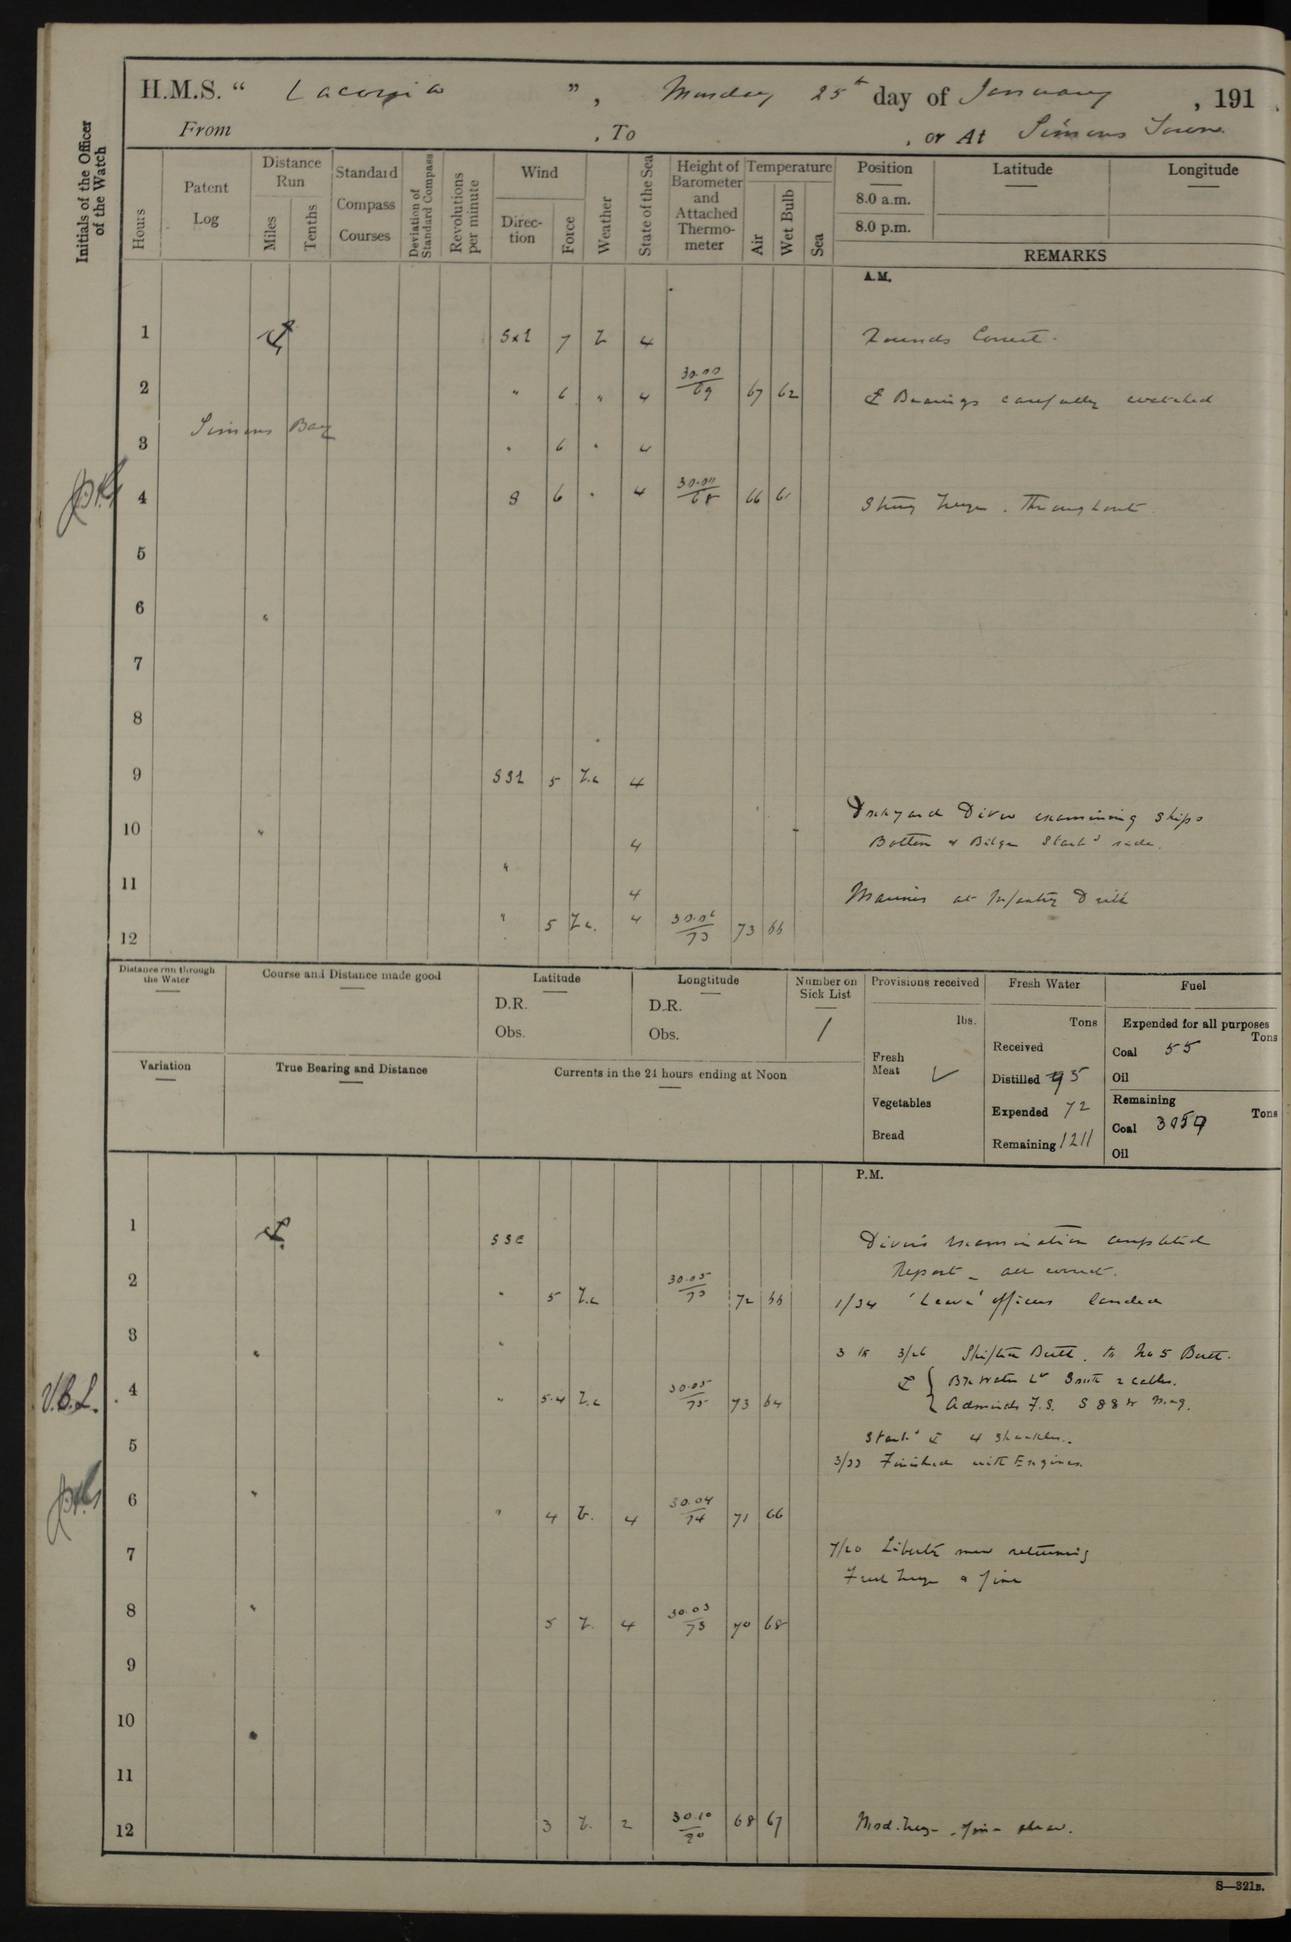 H.M.S. " Laconia ", Monday 25th day of January, 191
From , To , or At Simons Town.
Initials of the Officer of the Watch
Hours
Patent Log
Distance Run
Miles
Tenths
Standard Compass Courses
Deviation of Standard Compass
Revolutions per minute
Wind
Direction
Force
Weather
State of the Sea
Height of Barometer and Attached Thermometer
Temperature
Air
Wet Bulb
Sea
Position
Latitude
Longitude
8.0 a.m.
8.0 p.m.
REMARKS
A.M.
1 SxE 7 b 4 Rounds Correct.
2 " 6 " 4 30.00/69 67 62 Bearings carefully watched
Simons Bay
3 " 6 " 4
4 S 6 " 4 68 66 61 Strong breeze. Throughout
5
6
7
8
9 SSE 5 b.c 4
Dockyard Diver examining Ships
10 4
Bottom & Bilge Starbd side.
11 " 4 Marines at Infantry Drill
12 " 5 b.c. 4 30.06/73 73 66
Distance run through the Water
Course and Distance made good
Latitude
D.R.
Obs.
Longtitude
D.R.
Obs.
Number on Sick List
1
Provisions received
lbs.
Fresh Meat ✓
Vegetables
Bread
Fresh Water
Tons
Received
Distilled 95
Expended 72
Remaining 1211
Fuel
Expended for all purposes
Tons
Coal 55
Oil
Remaining
Tons
Coal 3059
Oil
Variation
True Bearing and Distance
Currents in the 24 hours ending at Noon
P.M.
1 SSE Divers examination completed
Report - all correct.
2 " 5 b.c 30.05/73 72 66 1/34 'Leave' officers landed
3 " 3 to 3/26 Shifted Berth. to No 5 Berth.
Bk Water Lt South 2 cables.
V.B.L. 4 " 5.4 b.c 30.05/75 73 64 Admirals F.S. S 88 W Mag.
5 Starbd 4 Shackles.
3/33 Finished with Engines.
6 " 4 b. 4 30.04/74 71 66
7 7/20 Liberty men returning
Fresh breeze & fine
8 5 b. 4 30.03/73 70 68
9
10
11
12 3 b. 2 30.10/70 68 67 Mod. breeze - fine & clear.
S—321B.